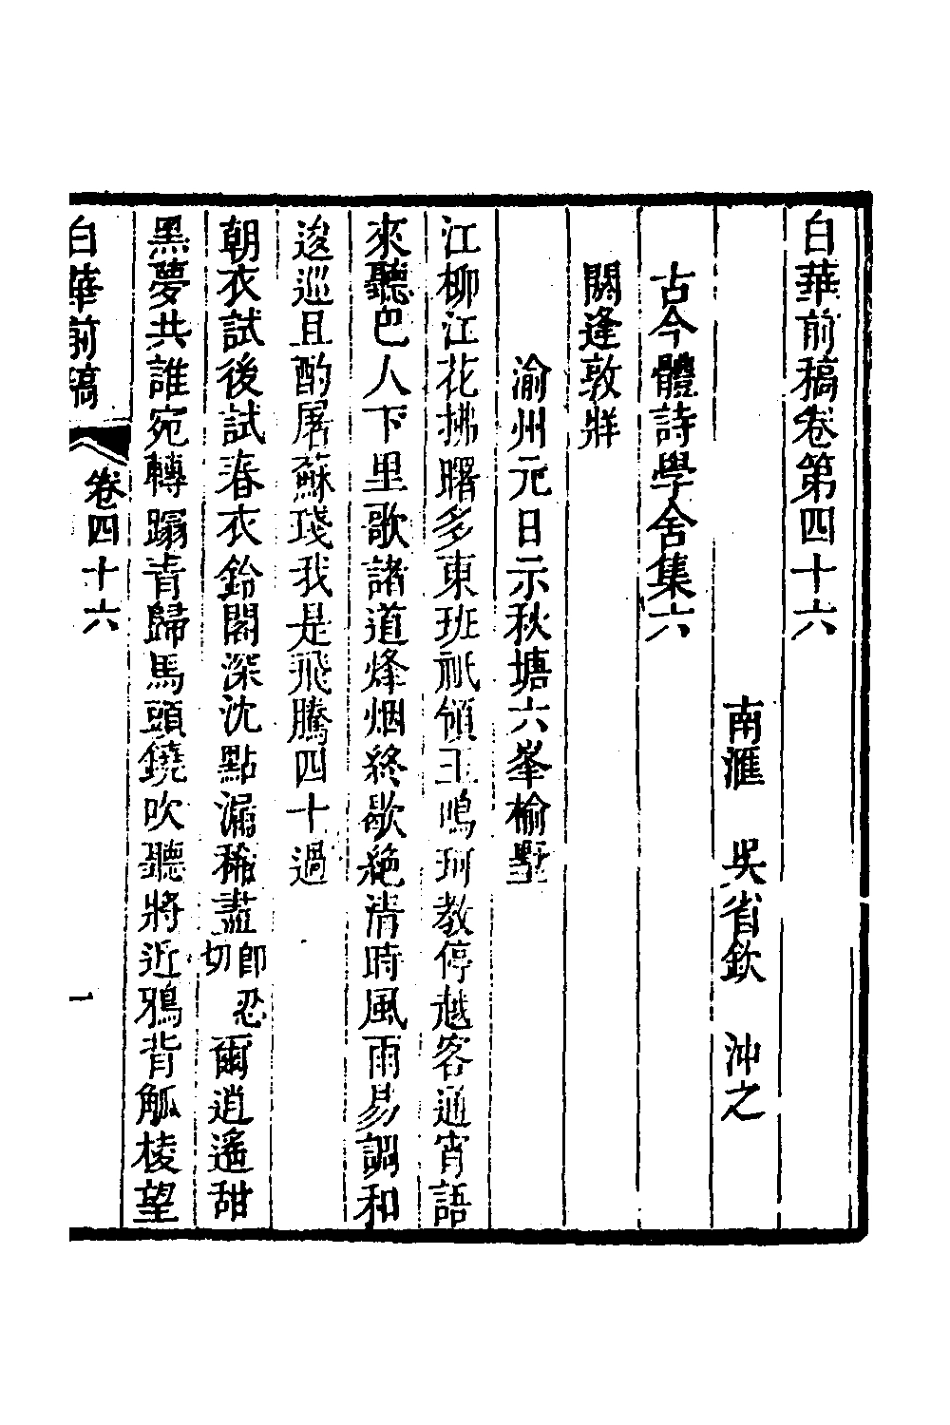 白華前稿卷第四十六
南滙　吳省欽　沖之
古今體詩學舍集六
閼逢敦牂
渝州元日示秋塘六峯榆墅
江柳江花拂曙多東班祇領玉鳴珂教停越客通宵語
來聽巴人下里歌諸道烽烟終歇絶清時風雨易調和
逡巡且酌屠蘇琖我是飛騰四十過
朝衣試後試春衣鈴閣深沈點漏稀盡即忍切爾逍遙甜
黑夢共誰宛轉踏青歸馬頭鐃吹聽將近鴉背觚棱望
白華前稿　卷四十六　一